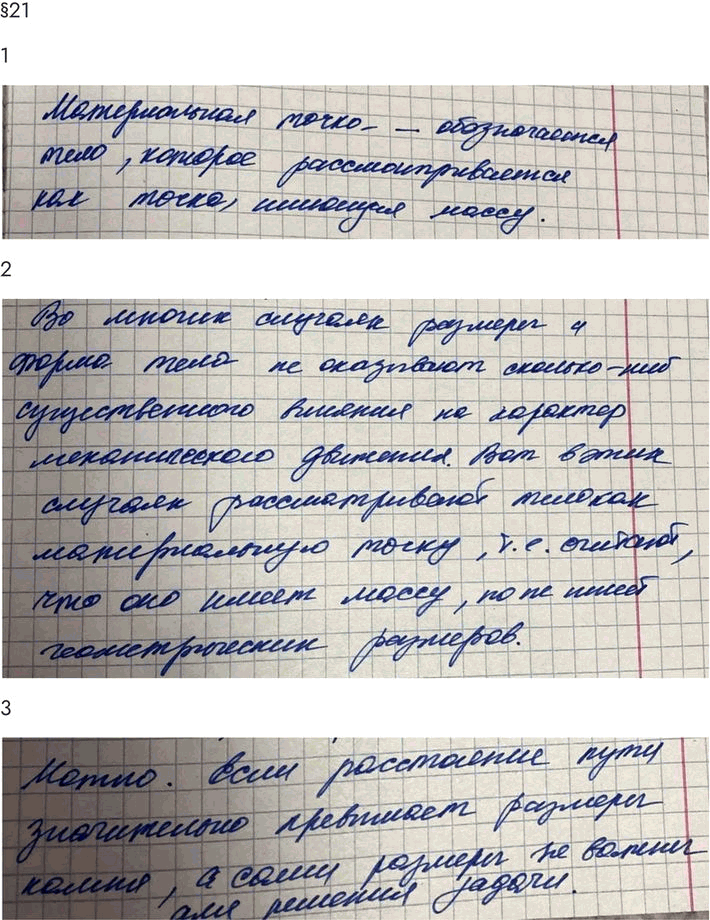 §21
1
Материальная точка – — обозначается
тело, которое рассматривается
как точка, имеющая массу.
2
Во многих случаях размеры и
форма тела не оказывают сколько-ниб
существенного влияния на характер
механического движения. Вот в этих
случаях рассматривают тело как
материальную точку, т.е. считают,
что оно имеет массу, но не имеет
геометрических размеров.
3
Можно. Если расстояние пути
значительно превышает размеры
камня, а сами размеры не важны
для решения задачи.